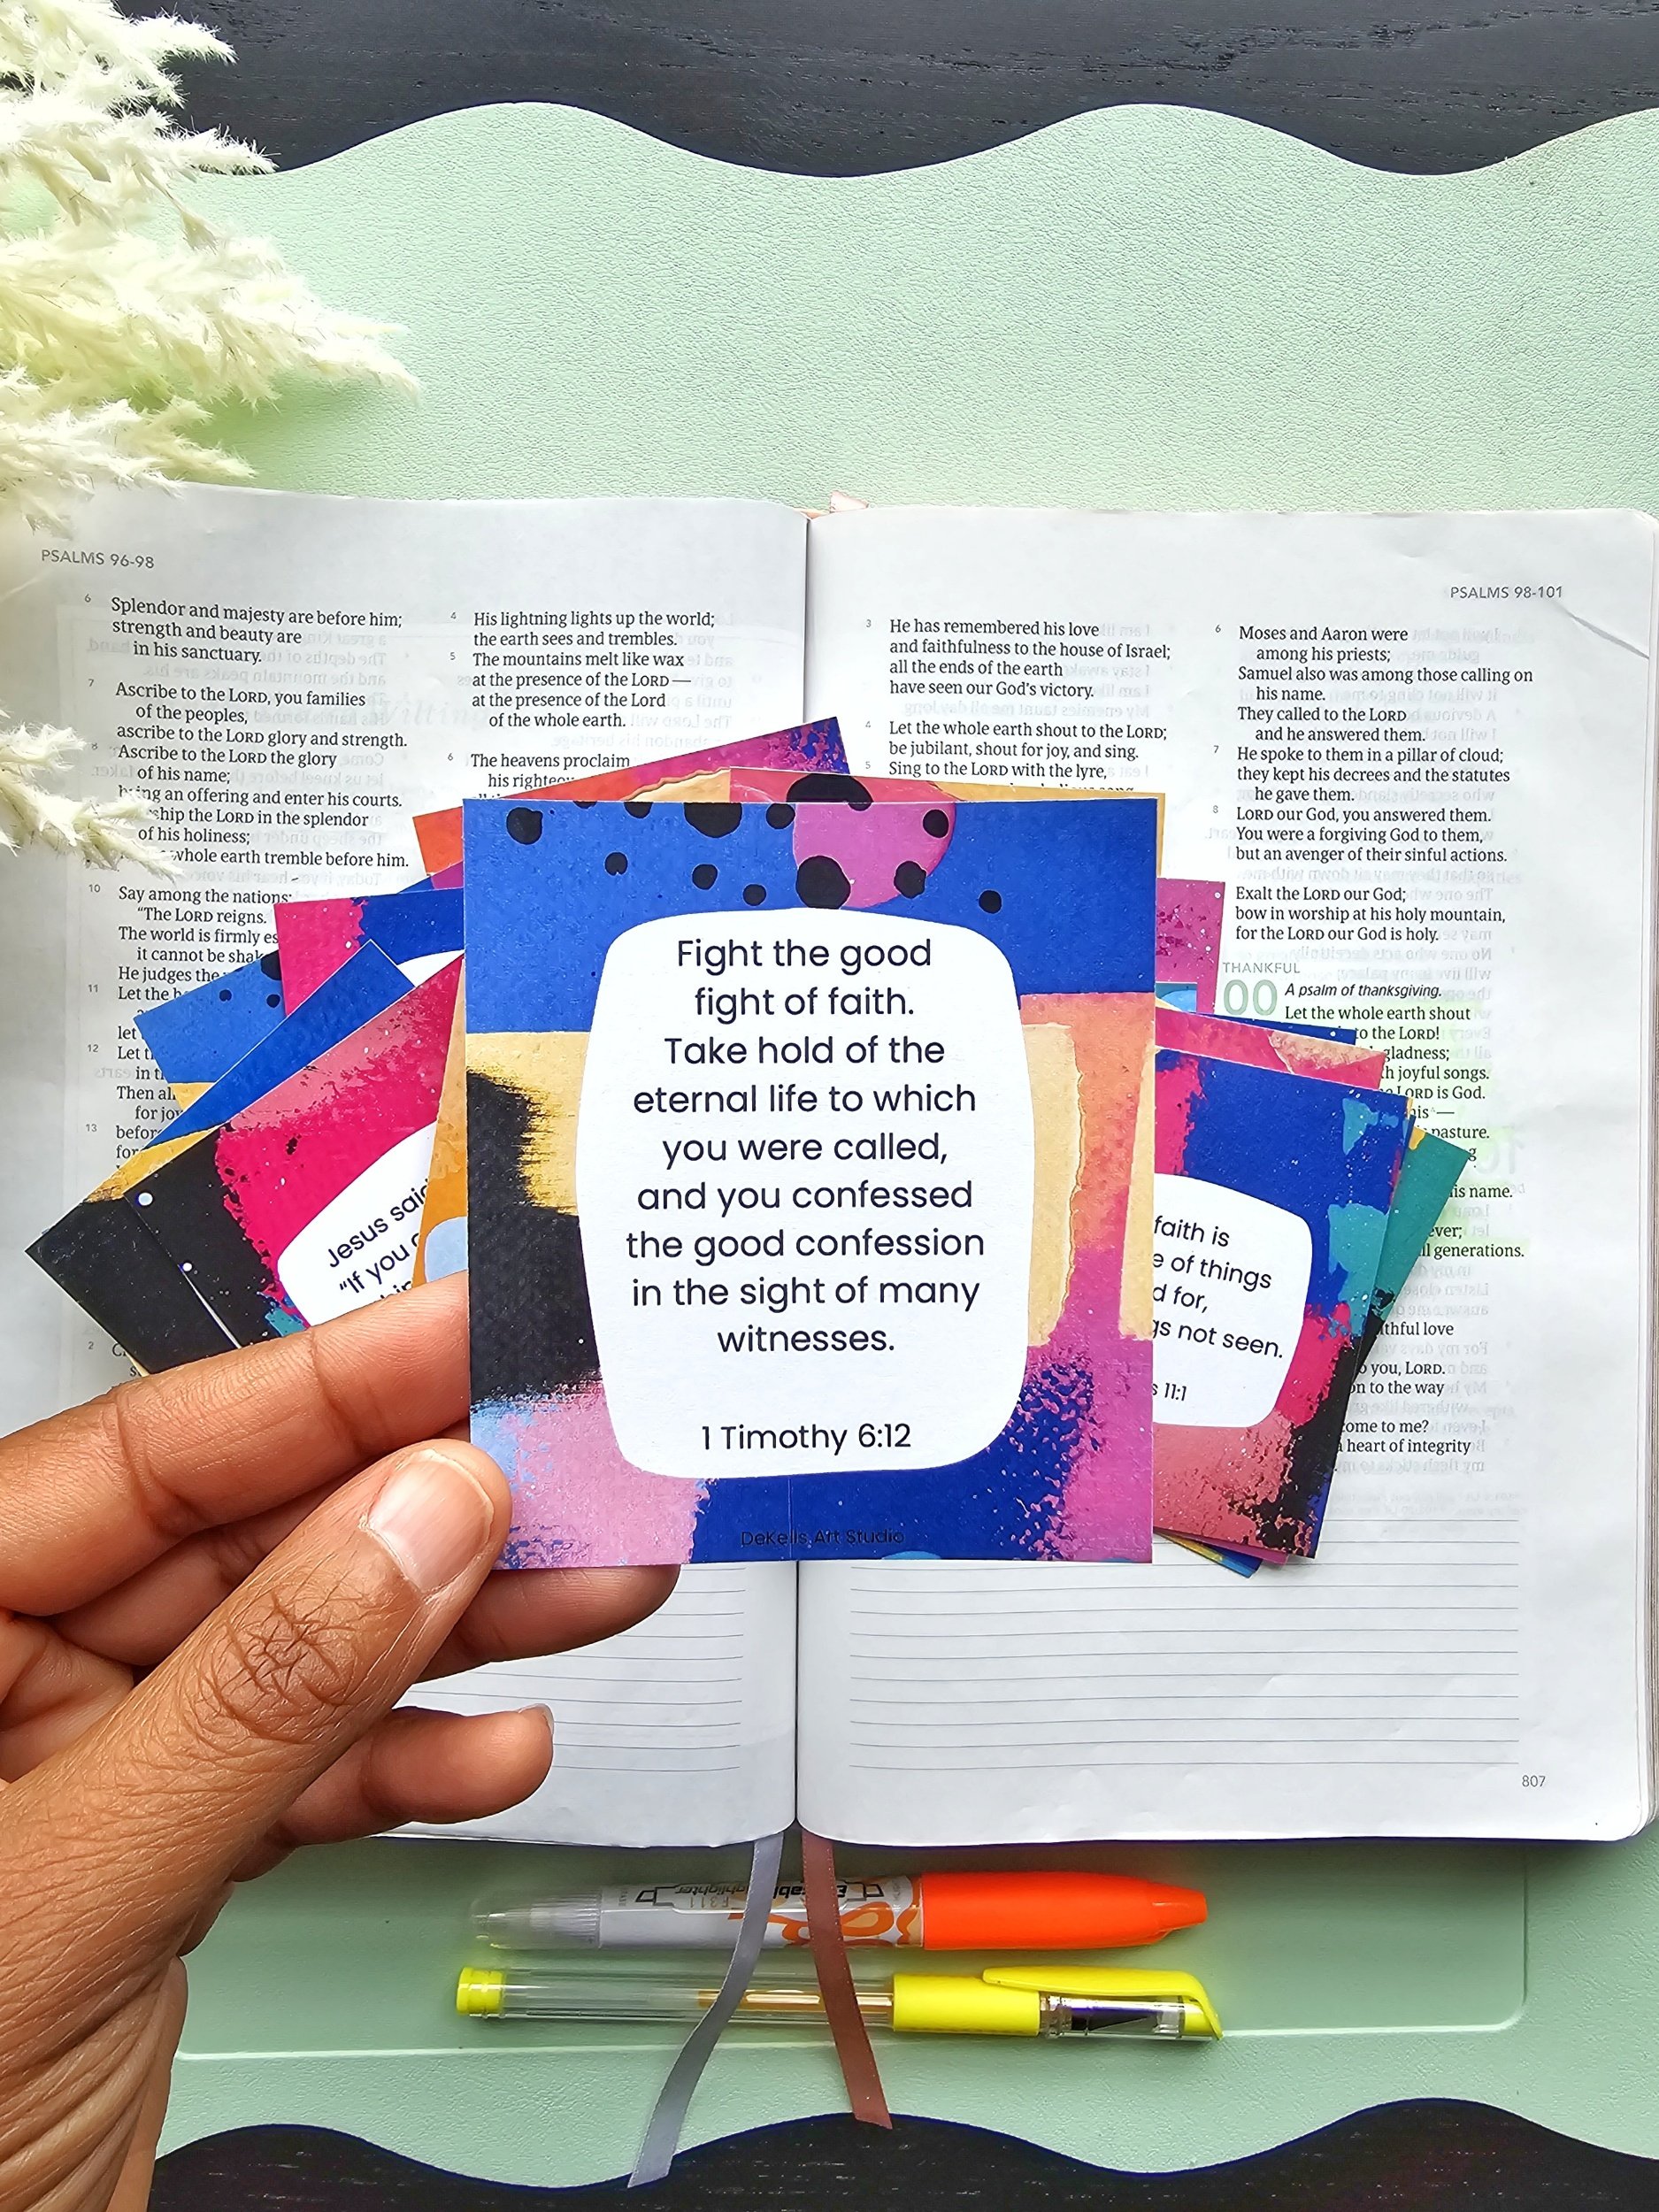 PSALMS 96-98
6 Splendor and majesty are before him;
strength and beauty are
in his sanctuary.
7 Ascribe to the LORD, you families
of the peoples,
ascribe to the LORD glory and strength.
8 Ascribe to the LORD the glory
of his name;
an offering and enter his courts.
the LORD in the splendor
of his holiness;
whole earth tremble before him.
10 Say among the nations:
"The LORD reigns.
The world is firmly
it cannot be
He judges the
11 Let the
let
12 Let
in
Then
for
13
for
2
4 His lightning lights up the world;
the earth sees and trembles.
5 The mountains melt like wax
at the presence of the LORD —
at the presence of the Lord
of the whole earth.
6 The heavens proclaim
his
PSALMS 98-101
3 He has remembered his love
and faithfulness to the house of Israel;
all the ends of the earth
have seen our God's victory.
4 Let the whole earth shout to the LORD;
be jubilant, shout for joy, and sing.
5 Sing to the LORD with the lyre,
6 Moses and Aaron were
among his priests;
Samuel also was among those calling on
his name.
They called to the LORD
and he answered them.
7 He spoke to them in a pillar of cloud;
they kept his decrees and the statutes
he gave them.
8 LORD our God, you answered them.
You were a forgiving God to them,
but an avenger of their sinful actions.
Exalt the LORD our God;
bow in worship at his holy mountain,
for the LORD our God is holy.
THANKFUL
00 A psalm of thanksgiving.
Let the whole earth shout
to the LORD!
gladness;
joyful songs.
LORD is God.
—
pasture.
his name.
generations.
love
you, LORD.
on to the way
come to me?
heart of integrity
Fight the good
fight of faith.
Take hold of the
eternal life to which
you were called,
and you confessed
the good confession
in the sight of many
witnesses.
1 Timothy 6:12
DeKells Art Studio
Jesus said
"If you
faith is
of things
for,
not seen.
11:1
807